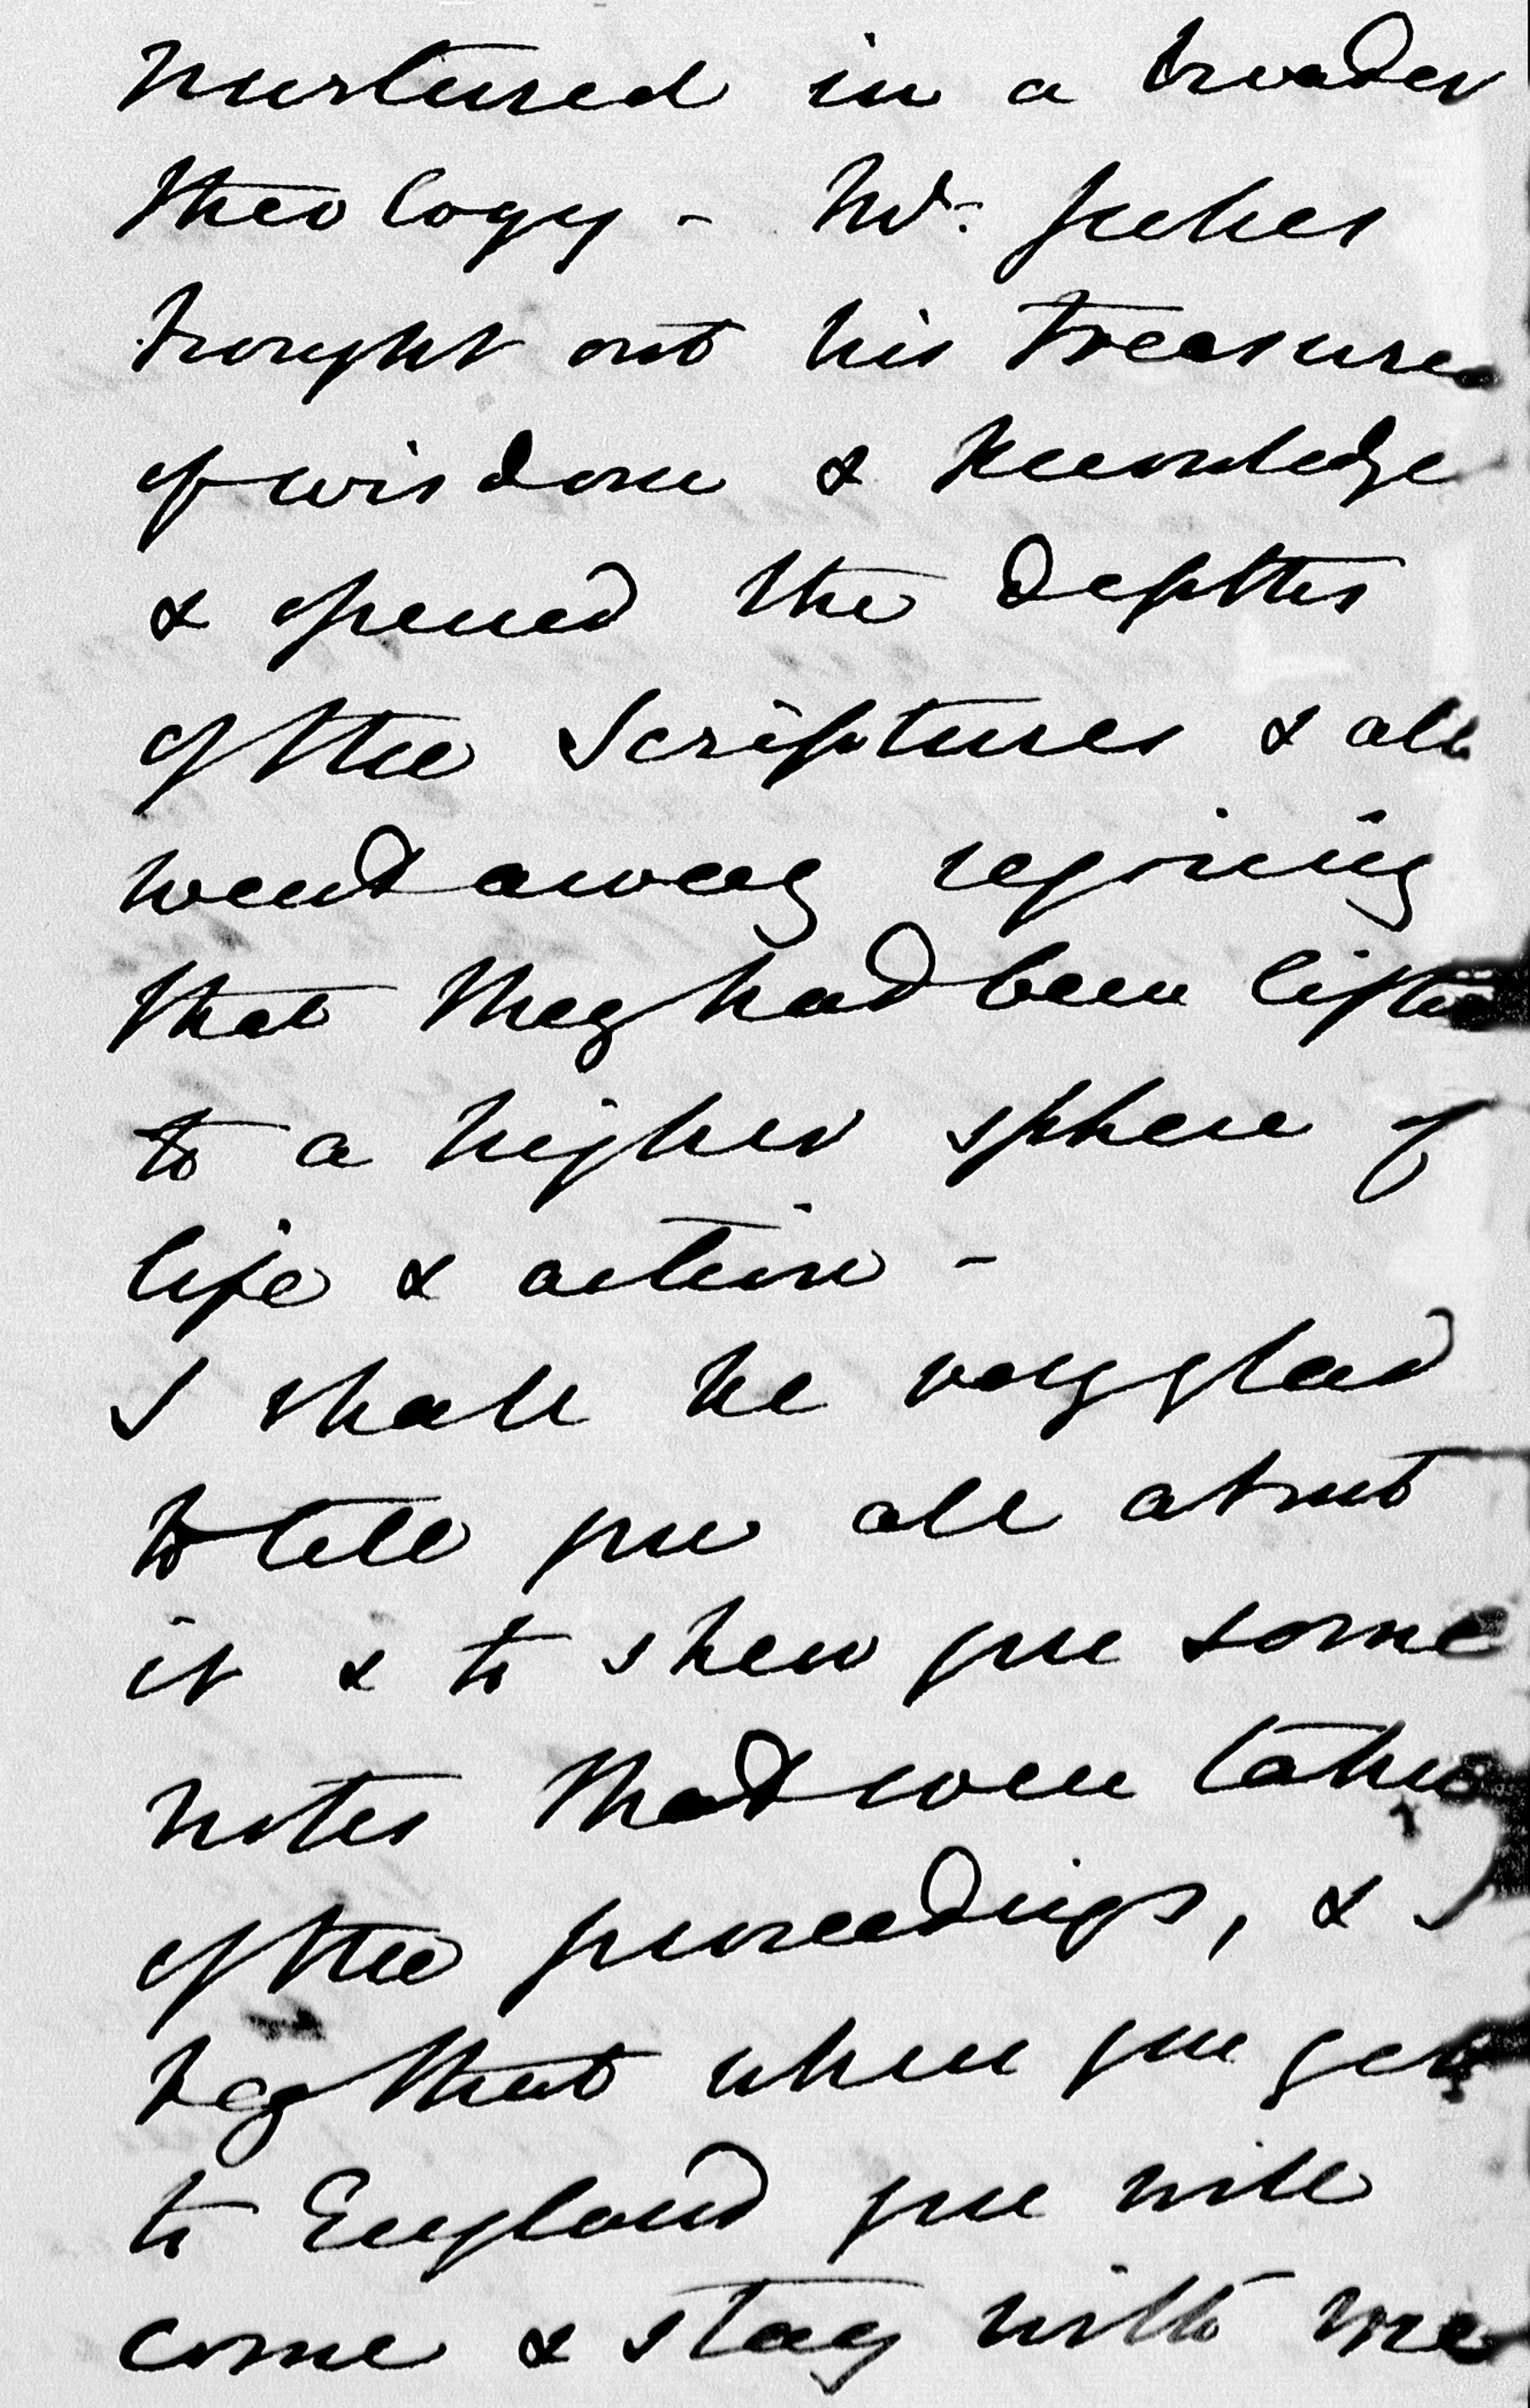 nurtured in a broader
theology - Mr. Jukes
brought out his treasures
of wisdom & knowledge
& opened the depths
of the Scriptures & all
went away rejoicing
that they had been lifted
to a higher sphere of
life & action -
I shall be very glad
to tell you all about
it & to shew you some
notes that were taken
of the proceedings, & I
beg that when you get
to England you will
come & stay with me